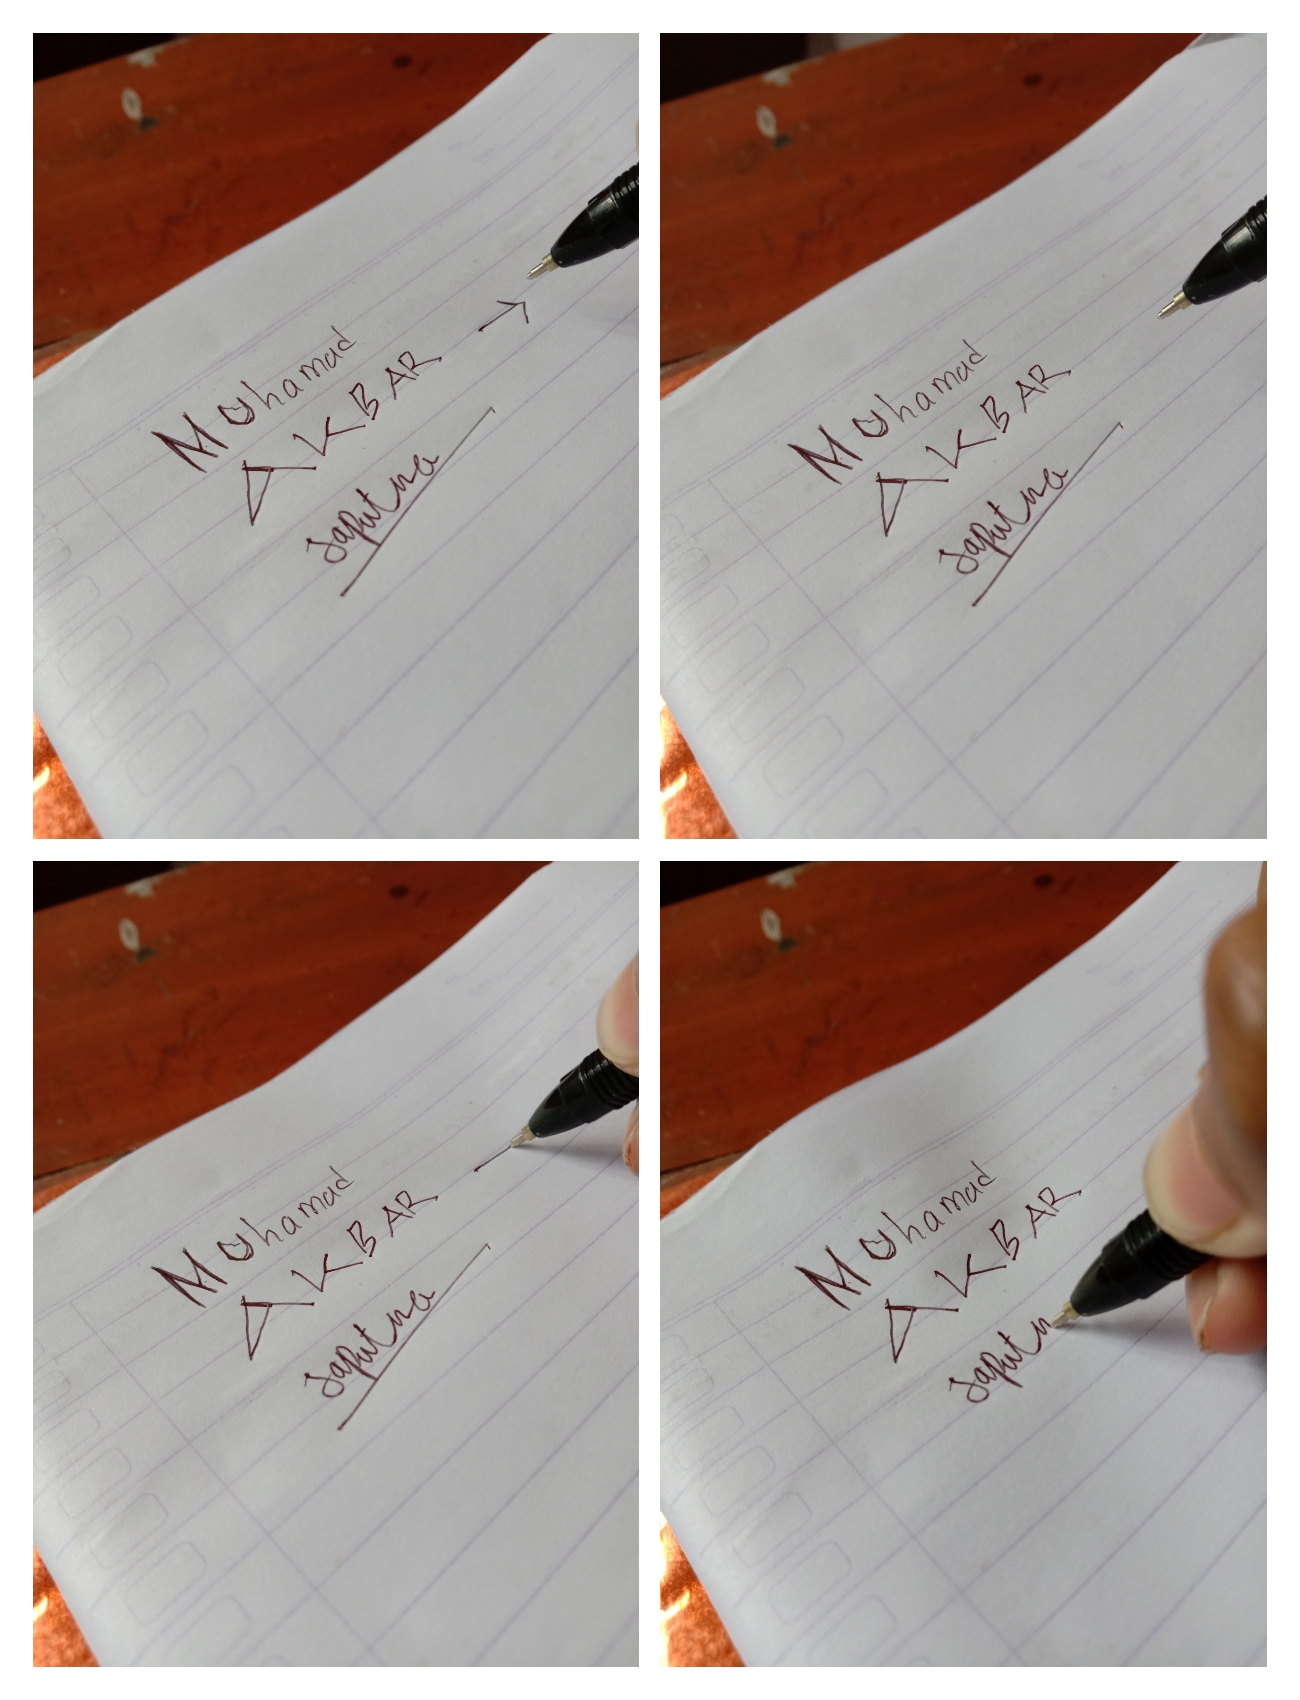 Muhamad
AKBAR →
saputra
Muhamad
AKBAR
saputra
Muhamad
AKBAR
saputra
Muhamad
AKBAR
saput